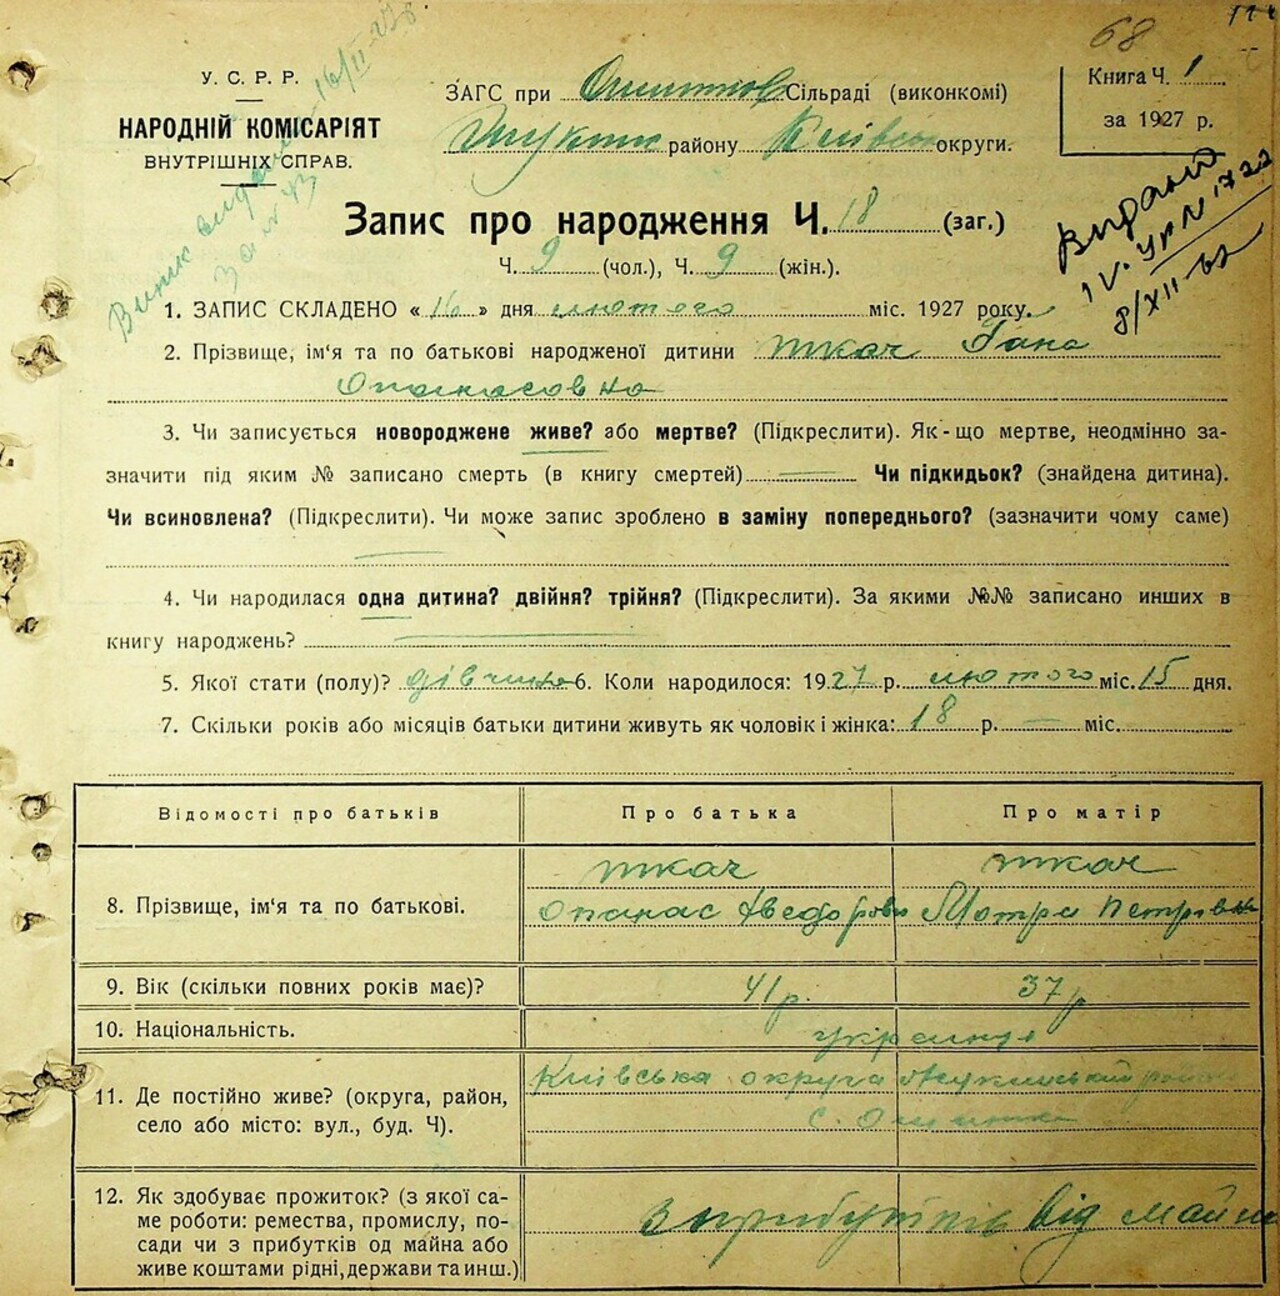 68
У. С. Р. Р.
НАРОДНІЙ КОМІСАРІЯТ
ВНУТРІШНІХ СПРАВ.
ЗАГС при Сільраді (виконкомі)
району Київськ округи.
Книга Ч. 1
за 1927 р.
16/II-27
Запис про народження Ч. 18 (заг.)
Ч. 9 (чол.), Ч. 9 (жін.).
8/XII-62
1. ЗАПИС СКЛАДЕНО « 16 » дня лютого - міс. 1927 року.
2. Прізвище, ім‘я та по батькові народженої дитини Ткач Гана
Опанасовна
3. Чи записується новороджене живе? або мертве? (Підкреслити). Як-що мертве, неодмінно за-
значити під яким № записано смерть (в книгу смертей) Чи підкидьок? (знайдена дитина).
Чи всиновлена? (Підкреслити). Чи може запис зроблено в заміну попереднього? (зазначити чому саме)
4. Чи народилася одна дитина? двійня? трійня? (Підкреслити). За якими №№ записано инших в
книгу народжень?
5. Якої стати (полу)? дівчина 6. Коли народилося: 1927 р. лютого міс. 15 дня.
7. Скільки років або місяців батьки дитини живуть як чоловік і жінка: 18 р. — міс.
Відомості про батьків Про батька Про матір
8. Прізвище, ім‘я та по батькові. Ткач Ткач
Опанас Хведорови Мотря Петрівна
9. Вік (скільки повних років має)? 41 р. 37 р
10. Національність. українці
11. Де постійно живе? (округа, район, Київська округа район
село або місто: вул., буд. Ч). с.
12. Як здобуває прожиток? (з якої са-
ме роботи: ремества, промислу, по- З прибутків від майна
сади чи з прибутків од майна або
живе коштами рідні, держави та инш.)